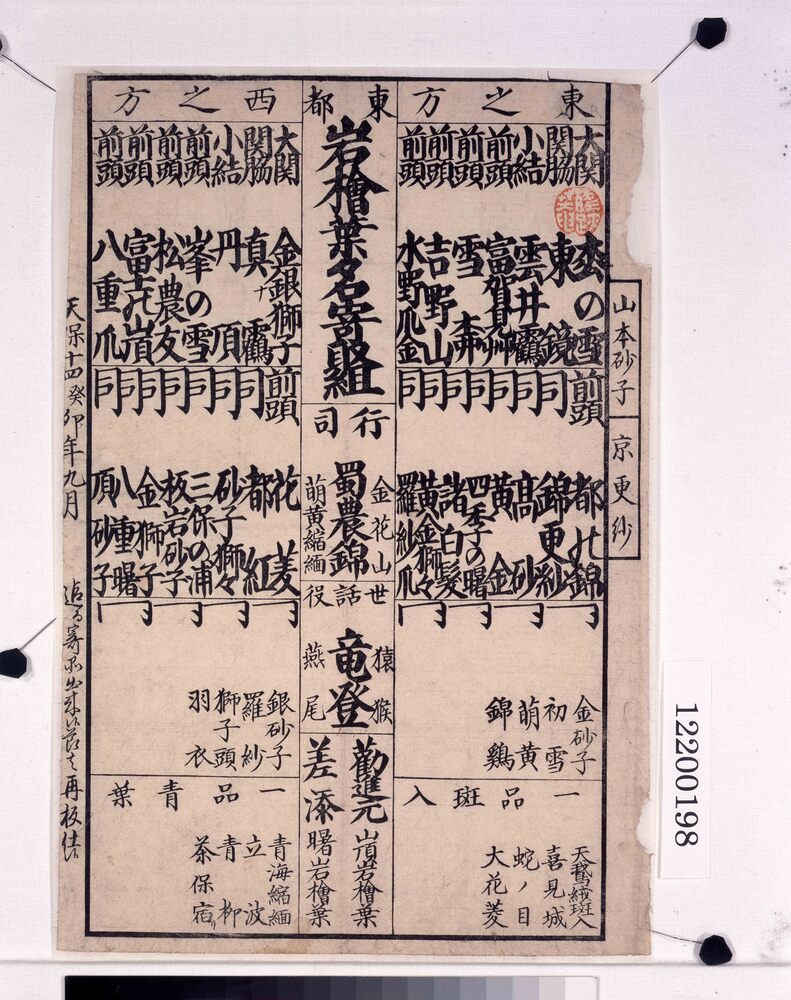 東之方
大関
関脇
小結
前頭
前頭
前頭
前頭
の雪
東鏡
雲井鶴
富賀見州
雪
吉野山
水野爪金
前頭
同
同
同
同
同
同
都の錦
錦更紗
高砂
黄金
四季子の曙
諸白髪
黄金獅々
羅紗爪
金砂子
初雪
萌黄
錦鷄
一品斑入
天鵞絨斑入
喜見城
蛇ノ目
大花菱
東都
岩檜葉名寄組
行司
金花山
蜀農錦
萌黄縮緬
世話役
猿猴
竜登
燕尾
勧進元
岩檜葉
差添
曙岩檜葉
西之方
大関
関脇
小結
前頭
前頭
前頭
前頭
金銀獅子
真ナ鶴
丹頂
峯の雪
松農友
富士の嵿
八重爪
前頭
同
同
同
同
同
同
花菱
都紅
砂子獅々
三保の浦
板岩砂子
金獅子
八重曙
頂砂子
銀砂子
羅紗
獅子頭
羽衣
一品青葉
青海縮緬
立波
青柳
茶保宿り
山本砂子
京更紗
天保十四癸卯年九月
再板仕候
12200198